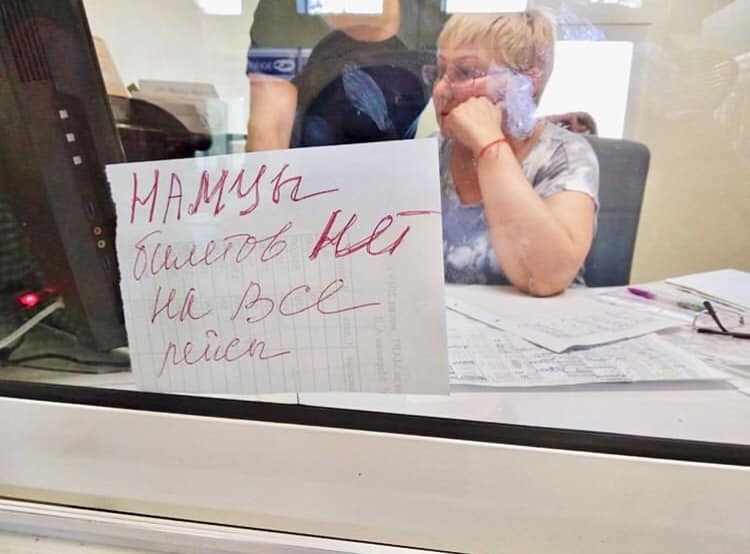 НАМЦЫ
билетов НЕТ
на ВСЕ
рейсы